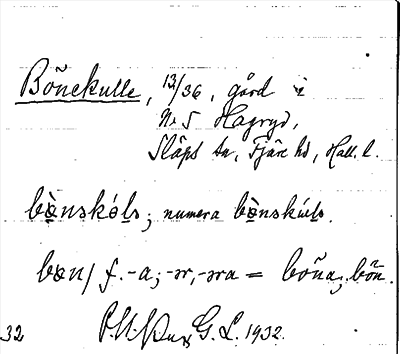 Bönekulle, 12/36, gård i
N:r 5 Hagryd,
Släps sn, Fjäre hd, Hall. l.
bö̀nskúls; numera bö̀nskúls.
bön/ f. -a; -ər, -əra = böna, bön.
32 G. L. 1932.